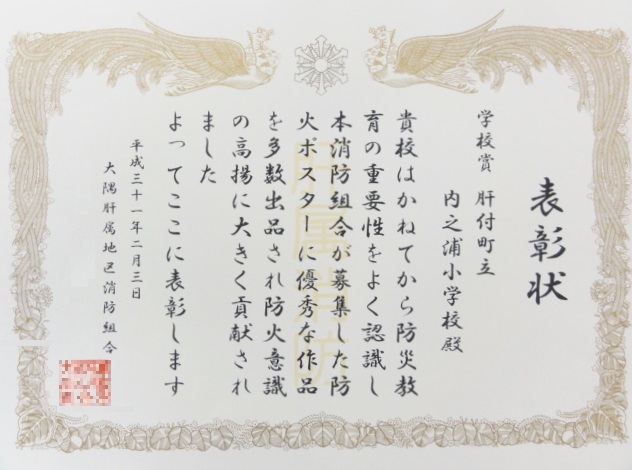 表彰状
学校賞 肝付町立
内之浦小学校殿
貴校はかねてから防災教
育の重要性をよく認識し
本消防組合が募集した防
火ポスターに優秀な作品
を多数出品され防火意識
の高揚に大きく貢献され
ました
よってここに表彰します
平成三十一年二月三日
大隅肝属地区消防組合
肝属消防